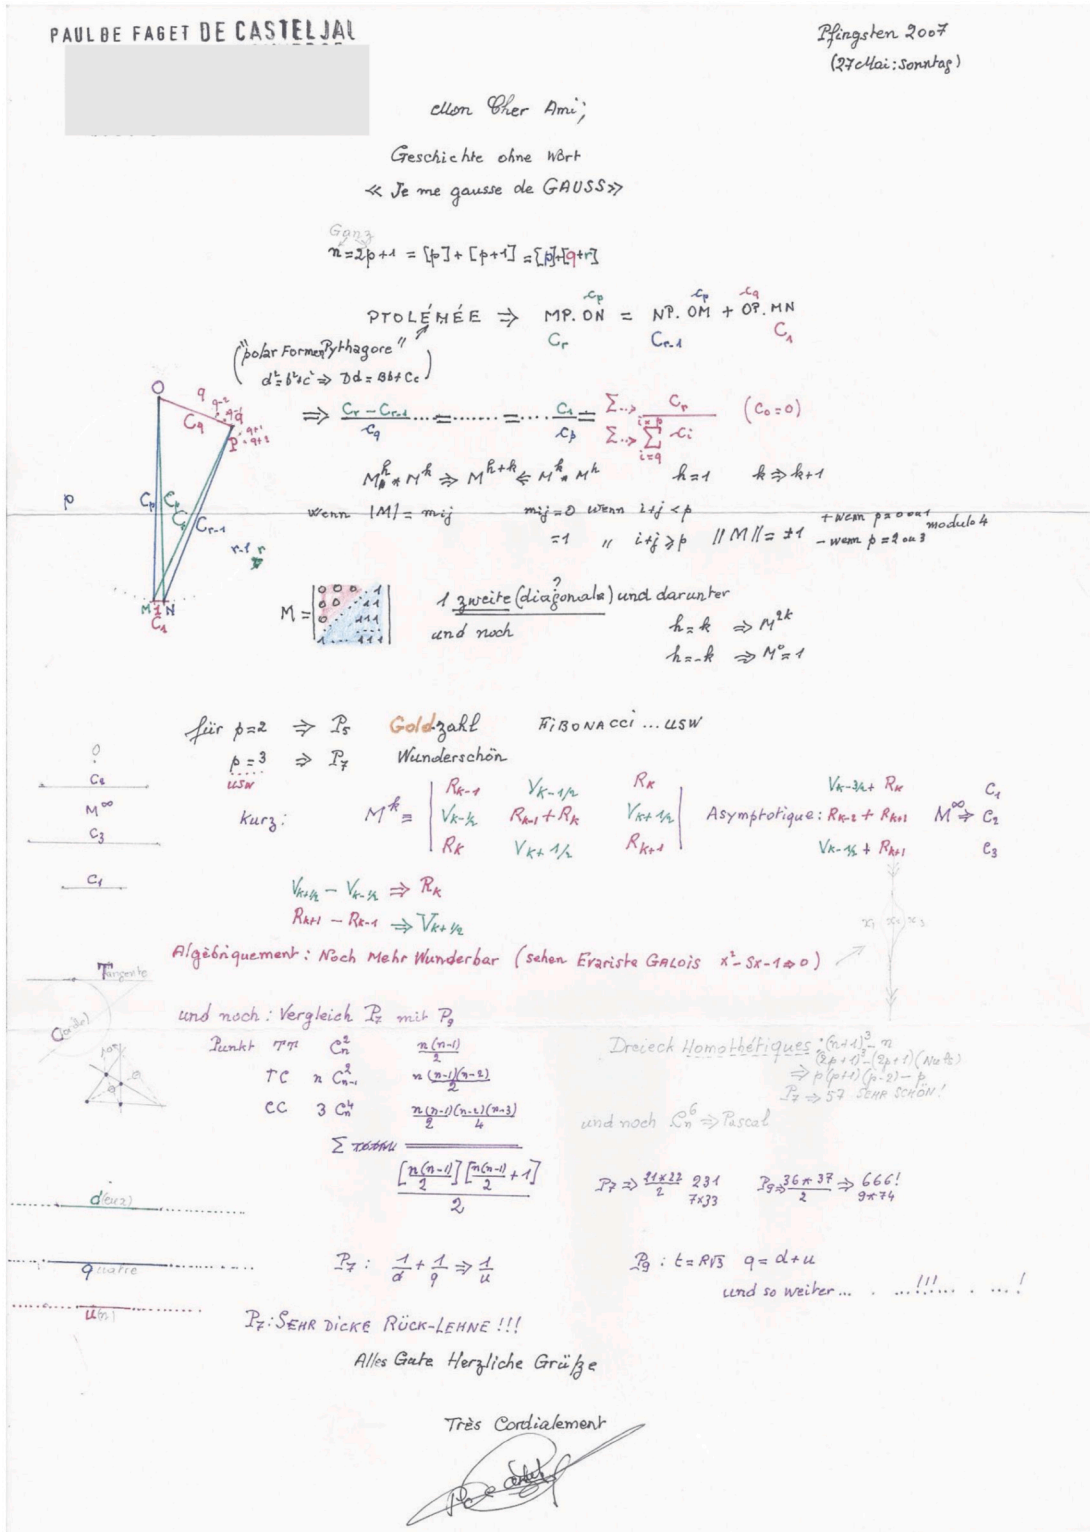 PAUL DE FAGET DE CASTELJAU
Pfingsten 2007
(27 Mai: Sonntag)
Mon Cher Ami;
Geschichte ohne Wört
« Je me gausse de GAUSS »
Ganz
n=2p+1 = [p] + [p+1] = [p]+[q+r]
Cp Cp Cq
PTOLÉMÉE ⇒ MP. ON = NP. OM + OP. MN
Cr Cr-1 C1
("polar Formen Pythagore"
d²=b²+c² ⇒ Dd = Bb+Cc)
⇒ Cr – Cr-1 / Cq ....=.......=.... C1 / Cp = Σ...> Cr / Σ...> Σ Ci (C0=0)
i=q
O
q
q-2
q-1
q
Cq
P
q+1
q+2
M^h * M^k ⇒ M^h+k ⇐ M^k * M^h h=1 k⇒k+1
p
Cp
Cr-1
wenn |M| = mij mij=0 wenn i+j<p
=1 " i+j⩾p ||M|| = ±1 + wenn p=0 ou 1
– wenn p=2 ou 3 modulo 4
r-1
r
M 1 N
C1
M = | 0 0 0 . 1
0 0 . 1 1
0 . 1 1 1
1 ... 1 1 1 |
1 zweite (diagonale) und darunter
?
und noch h=k ⇒ M^2k
h=-k ⇒ M°=1
für p=2 ⇒ P5 Goldzahl FiBONACCi ... USW
p=3 ⇒ P7 Wunderschön
usw
C2
M^∞
C3
C1
Kurz: M^k = | RK-1 VK-1/2 RK
VK-1/2 RK-1+RK VK+1/2
RK VK+1/2 RK+1 |
Asymptotique: VK-3/2 + RK
RK-2 + RK+1
VK-1/2 + RK+1
M^∞ ⇒ C1
C2
C3
VK+1/2 – VK-1/2 ⇒ RK
RK+1 – RK-1 ⇒ VK+1/2
x1 x2 x3
Algèbriquement: Noch Mehr Wunderbar (sehen Evariste GALOIS x²-Sx-1⇒0)
Tangente
C(ordel)
und noch: Vergleich P7 mit P9
Punkt TT Cn² n(n-1)/2
TC n Cn-1² n(n-1)(n-2)/2
CC 3 Cn⁴ n(n-1)(n-2)(n-3)/2 4
Σ
[n(n-1)/2] [n(n-1)/2 + 1] / 2
Dreieck Homothétiques: (n+1)³-n
(2p+1)³-(2p+1)
⇒ p(p+1)(p-2)-p
P7 ⇒ 57 SEHR SCHÖN!
und noch Cn⁶ ⇒ Pascal
P7 ⇒ 21*22/2 231
7*33
P9⇒ 36*37/2 ⇒ 666!
9*74
d(eux)
quatre
u(n)
P7: 1/d + 1/q ⇒ 1/u
P9: t=R√3 q=d+u
und so weiter... . ...!!!... . ...!
P7: SEHR DiCKE RÜCK-LEHNE !!!
Alles Gute Herzliche Grüße
Très Cordialement